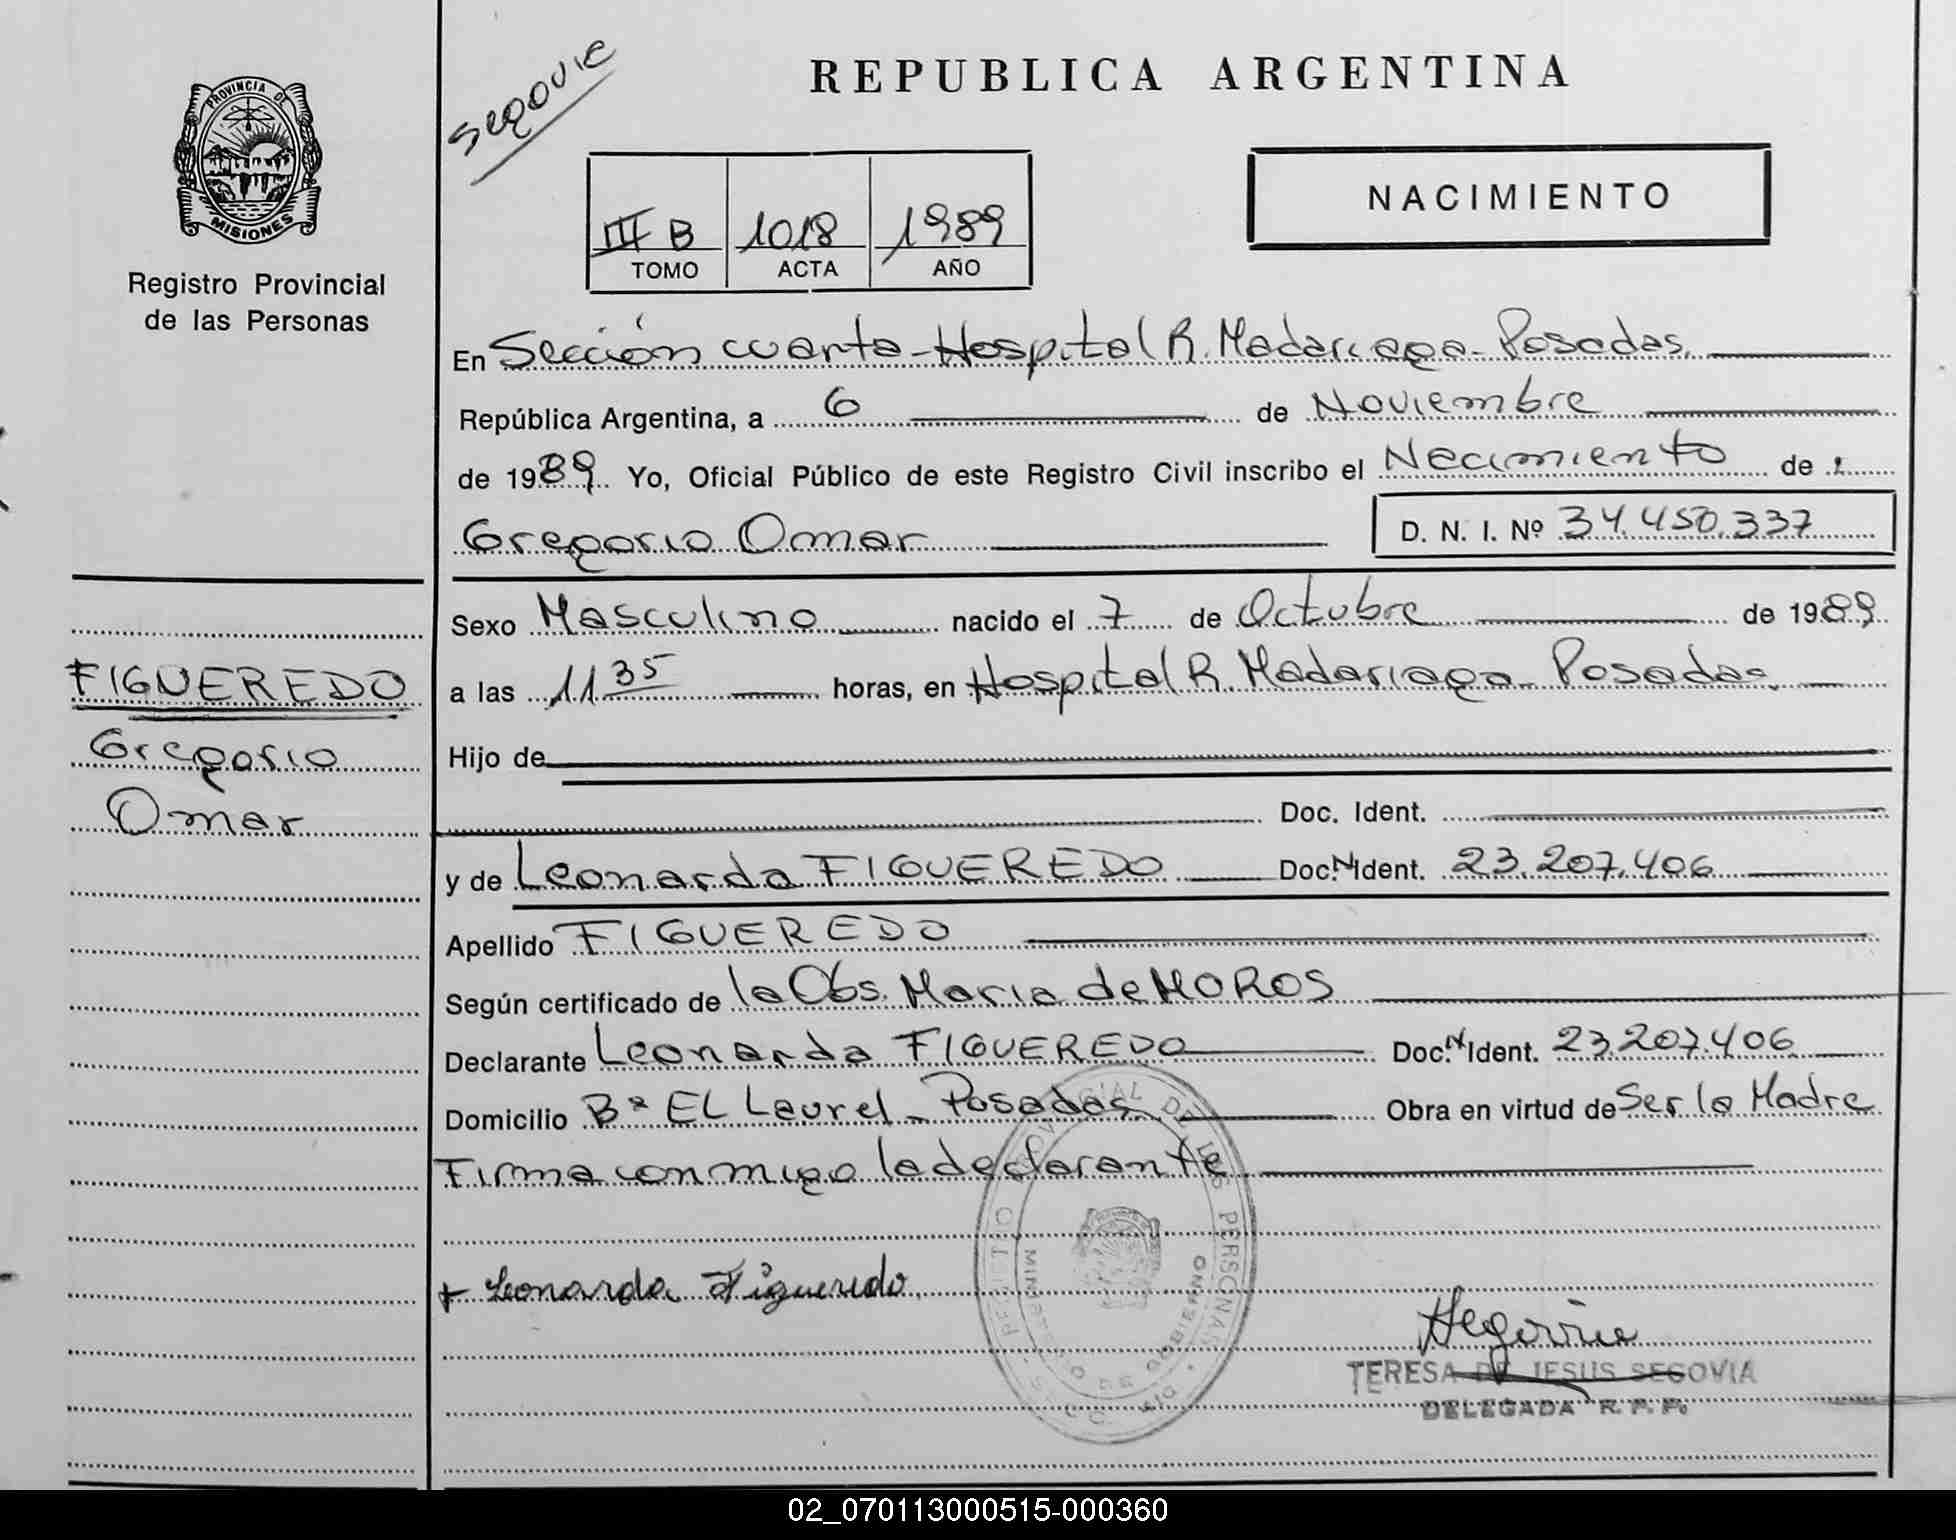 PROVINCIA DE
MISIONES
Registro Provincial
de las Personas
Segovie
REPUBLICA ARGENTINA
III B 1018 1989
TOMO ACTA AÑO
NACIMIENTO
En Sección cuarta - Hospital R. Madariaga - Posadas.
República Argentina, a 6 de Noviembre
de 1989. Yo, Oficial Público de este Registro Civil inscribo el Nacimiento de :
Gregorio Omar D. N. I. Nº 34.450.337
Sexo Masculino nacido el 7 de Octubre de 1989.
a las 11 35 horas, en Hospital R. Madariaga - Posadas.
Hijo de
Doc. Ident.
y de Leonarda FIGUEREDO Doc. N Ident. 23.207.406
Apellido FIGUEREDO
Según certificado de la Obs. Maria de MOROS
Declarante Leonarda FIGUEREDO Doc. N Ident. 23.207.406
Domicilio Bº EL Laurel - Posadas Obra en virtud de Ser la Madre
Firma conmigo la declarante
FIGUEREDO
Gregorio
Omar
+ Leonarda Figueredo
REGISTRO PROVINCIAL DE LAS PERSONAS
MINISTERIO DE GOBIERNO
Segovia
TERESA DE JESUS SEGOVIA
DELEGADA R. P. P.
02_070113000515-000360